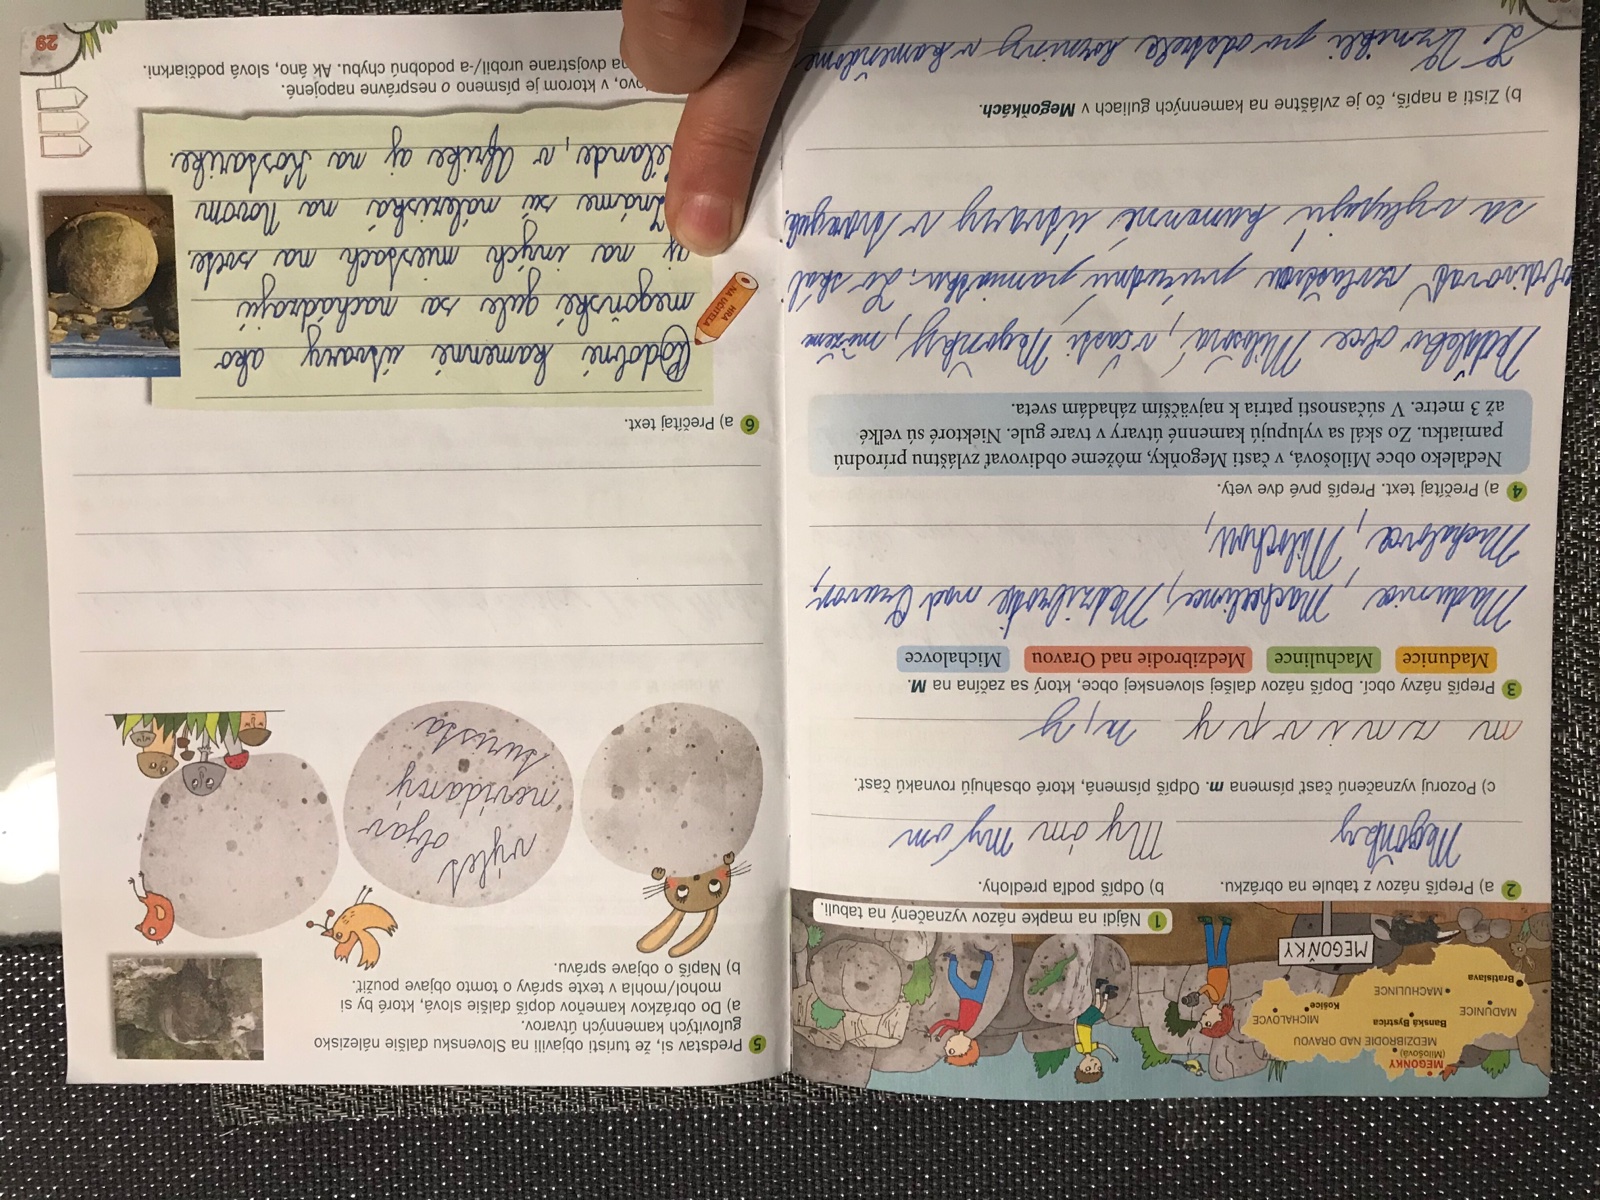 MEGOŇKY
(Milošová)
MEDZIBRODIE NAD ORAVOU
MADUNICE
Banská Bystrica
MICHALOVCE
MACHULINCE
Košice
Bratislava
MEGOŇKY
1 Nájdi na mapke názov vyznačený na tabuli.
2 a) Prepíš názov z tabule na obrázku.
b) Odpíš podľa predlohy.
Megoňky
My óm My óm
c) Pozoruj vyznačenú časť písmena m. Odpíš písmená, ktoré obsahujú rovnakú časť.
m z n u i v p y n, y
3 Prepíš názvy obcí. Dopíš názov ďalšej slovenskej obce, ktorý sa začína na M.
Madunice Machulince Medzibrodie nad Oravou Michalovce
Madunice, Machulince, Medzibrodie nad Oravou,
Michalovce,
4 a) Prečítaj text. Prepíš prvé dve vety.
Neďaleko obce Milošová, v časti Megoňky, môžeme obdivovať zvláštnu prírodnú
pamiatku. Zo skál sa vylupujú kamenné útvary v tvare gule. Niektoré sú veľké
až 3 metre. V súčasnosti patria k najväčším záhadám sveta.
Neďaleko obce Milošová, v časti Megoňky, môžeme
obdivovať zvláštnu prírodnú pamiatku. Zo skál
sa vylupujú kamenné útvary v
b) Zisti a napíš, čo je zvláštne na kamenných guliach v Megoňkách.
Vznikli pri odstrele horniny v kameňolome
5 Predstav si, že turisti objavili na Slovensku ďalšie nálezisko
guľovitých kamenných útvarov.
a) Do obrázkov kameňov dopíš ďalšie slová, ktoré by si
mohol/mohla v texte správy o tomto objave použiť.
b) Napíš o objave správu.
výlet
objav
nevídaný
turista
6 a) Prečítaj text.
HRA
NA UČITEĽA
Podobné kamenné útvary ako
megoňské gule sa nachádzajú
aj na iných miestach na svete.
Známe sú náleziská na Novom
Zélande, v Afrike aj na Kostarike.
slovo, v ktorom je písmeno o nesprávne napojené
na dvojstrane urobil/-a podobnú chybu. Ak áno, slová podčiarkni.
29